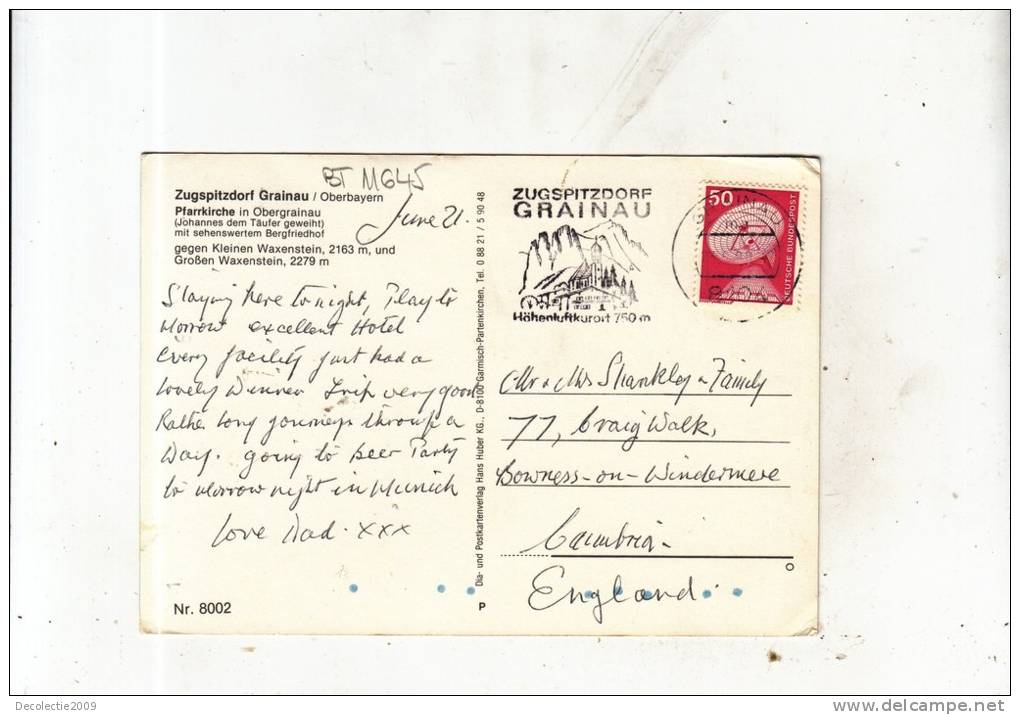 BT M645
Zugspitzdorf Grainau / Oberbayern
Pfarrkirche in Obergrainau
(Johannes dem Täufer geweiht)
mit sehenswertem Bergfriedhof
gegen Kleinen Waxenstein, 2163 m, und
Großen Waxenstein, 2279 m
June 21.
Staying here tonight, Play to
Morrow excellent Hotel
Every facility just had a
lovely Dinner Trip very good
Rather long journeys through a
Day. going to Beer Party
to morrow night in Munich
Love Dad. xxx
Nr. 8002
P
Dia- und Postkartenverlag Hans Huber KG., D-8100 Garmisch-Partenkirchen, Tel. 0 88 21 / 5 90 48
ZUGSPITZDORF
GRAINAU
Höhenluftkurort 750 m
50
DEUTSCHE BUNDESPOST
Mr & Mrs Shankley & Family
77, Craig Walk,
Bowness-on-Windermere
Cumbria-
England.
Decolectie2009
delcampe.net